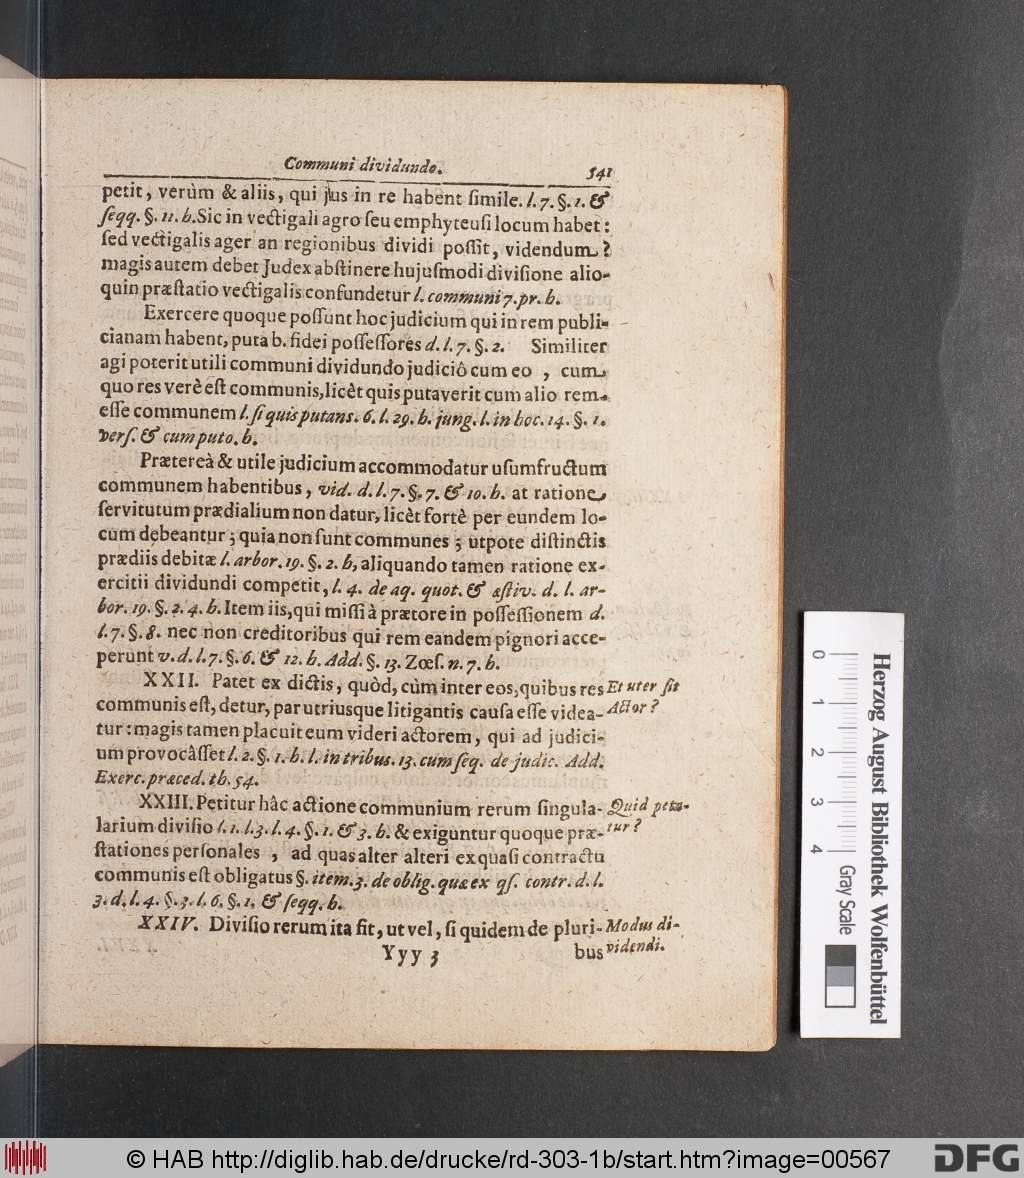 Communi dividundo. 541
petit, verùm & aliis, qui jus in re habent ſimile. l. 7. §. 1. &
ſeqq. §. 11. h. Sic in vectigali agro ſeu emphyteuſi locum habet:
ſed vectigalis ager an regionibus dividi poſſit, videndum?
magis autem debet Judex abſtinere hujuſmodi diviſione alio-
quin præſtatio vectigalis confundetur l. communi 7. pr. h.
Exercere quoque poſſunt hoc judicium qui in rem publi-
cianam habent, puta b. fidei poſſeſſores d. l. 7. §. 2. Similiter
agi poterit utili communi dividundo judiciô cum eo, cum
quo res verè eſt communis, licèt quis putaverit cum alio rem
eſſe communem l. ſi quis putans. 6. l. 29. h. jung. l. in hoc. 14. §. 1.
verſ. & cum puto. h.
Prætereà & utile judicium accommodatur uſumfructum
communem habentibus, vid. d. l. 7. §. 7. & 10. h. at ratione
ſervitutum prædialium non datur, licèt fortè per eundem lo-
cum debeantur; quia non ſunt communes; utpote diſtinctis
prædiis debitæ l. arbor. 19. §. 2. h, aliquando tamen ratione ex-
ercitii dividundi competit, l. 4. de aq. quot. & æſtiv. d. l. ar-
bor. 19. §. 2. 4. h. Item iis, qui miſſi à prætore in poſſeſſionem d.
l. 7. §. 8. nec non creditoribus qui rem eandem pignori acce-
perunt v. d. l. 7. §. 6. & 12. h. Add. §. 13. Zœſ. n. 7. h.
XXII. Patet ex dictis, quòd, cùm inter eos, quibus res Et uter ſit
communis eſt, detur, par utriusque litigantis cauſa eſſe videa- Actor?
tur: magis tamen placuit eum videri actorem, qui ad judici-
um provocâſſet l. 2. §. 1. h. l. in tribus. 13. cum ſeq. de judic. Add.
Exerc. præced. th. 54.
XXIII. Petitur hâc actione communium rerum ſingula- Quid peta-
larium diviſio l. 1. l. 3. l. 4. §. 1. & 3. h. & exiguntur quoque præ- tur?
ſtationes perſonales, ad quas alter alteri ex quaſi contractu
communis eſt obligatus §. item. 3. de oblig. quæ ex qſ. contr. d. l.
3. d. l. 4. §. 3. l. 6. §. 1. & ſeqq. h.
XXIV. Diviſio rerum ita fit, ut vel, ſi quidem de pluri- Modus di-
Yyy 3 bus videndi.
0 1 2 3 4
Gray Scale
Herzog August Bibliothek Wolfenbüttel
© HAB http://diglib.hab.de/drucke/rd-303-1b/start.htm?image=00567
DFG